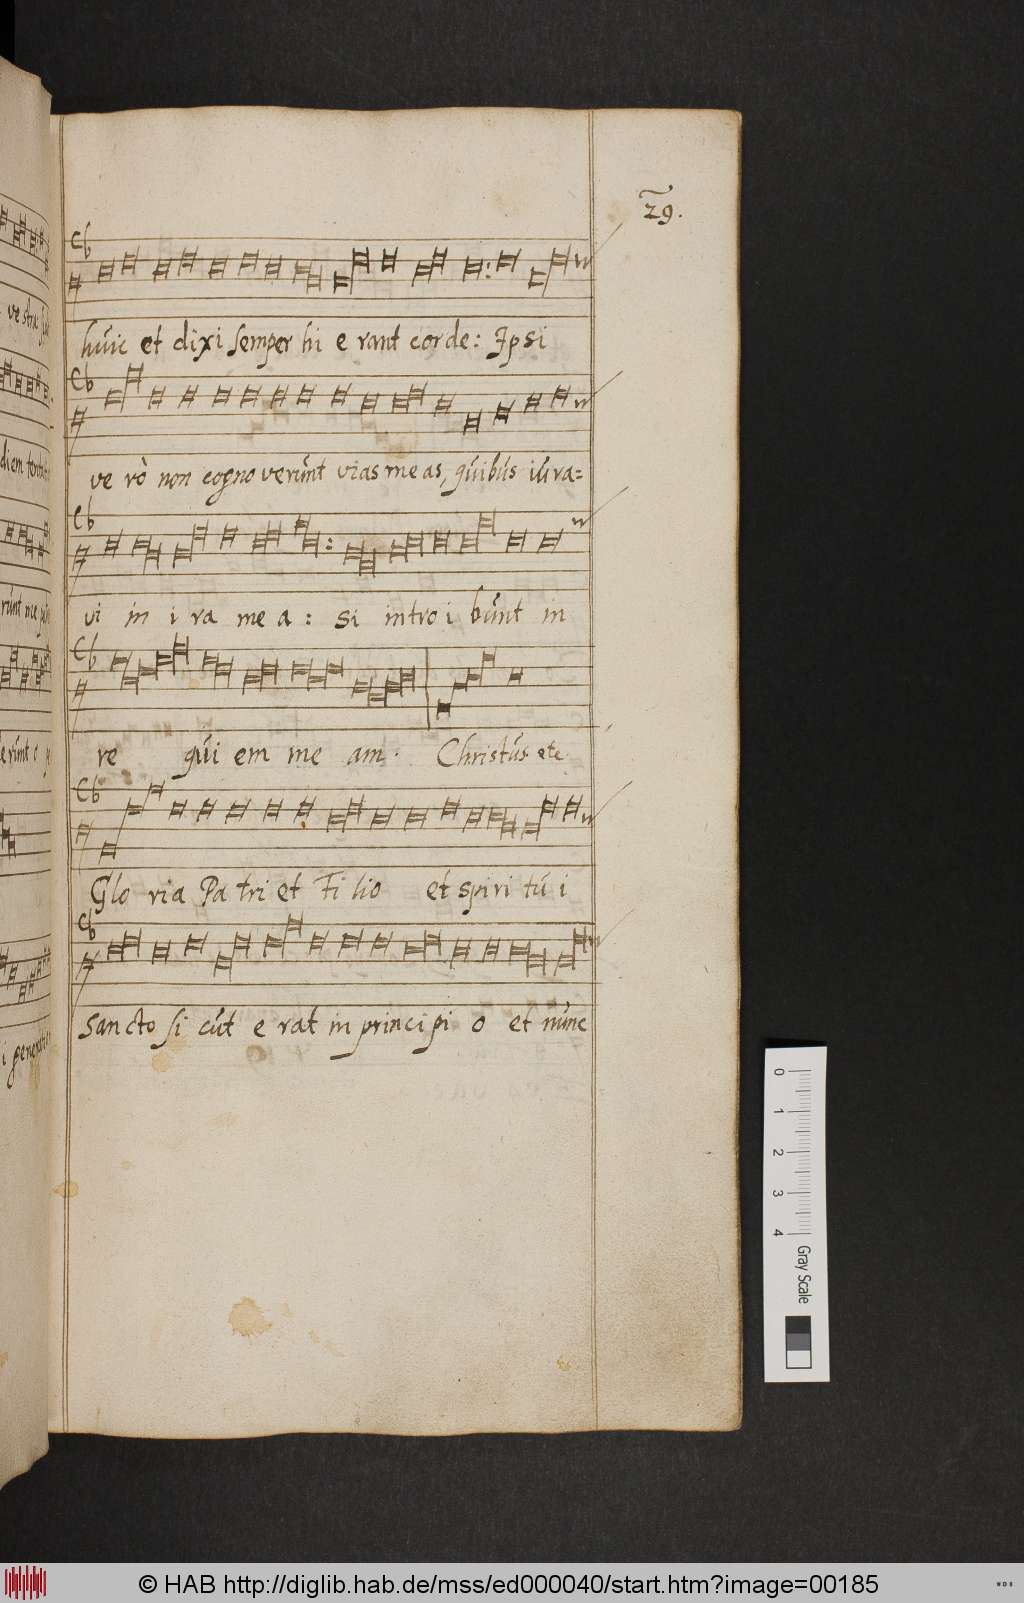 29.
huic et dixi semper hi e rant corde: Ipsi
ve rò non cogno verunt vias me as, quibus iu ra=
vi in i ra me a : si intro i bunt in
re qui em me am. Christus etc
Glo ria Pa tri et Fi lio et spiri tu i
Sancto si cut e rat in principi o et nunc
ve stra
diem
runt me
erunt
i genera
0 1 2 3 4 Gray Scale
© HAB http://diglib.hab.de/mss/ed000040/start.htm?image=00185
WDB